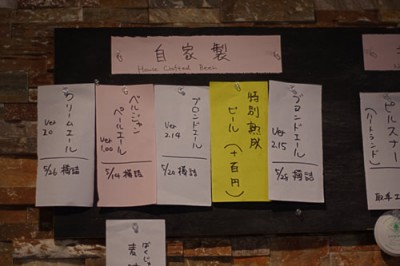 自家製
House Crafted Beer
ブロンドエール
Ver 2.15
5/24 樽詰
特別熟成
ビール(+百円)
ブロンドエール
Ver 2.14
5/20 樽詰
ベルジャン
ペールエール
Ver 1.00
5/14 樽詰
クリームエール
Ver 2.0
5/26 樽詰
ピルスナー
(ハートランド)